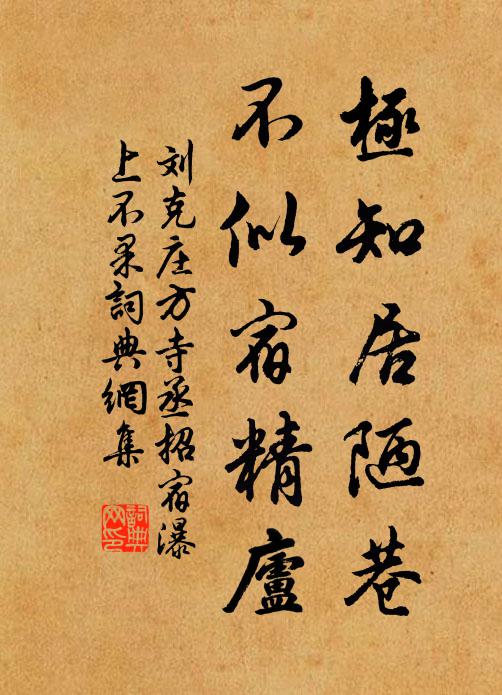 極知居陋巷
不似宿精廬
刘克庄方寺丞招宿瀑
上不果詞典網集
詞典网印